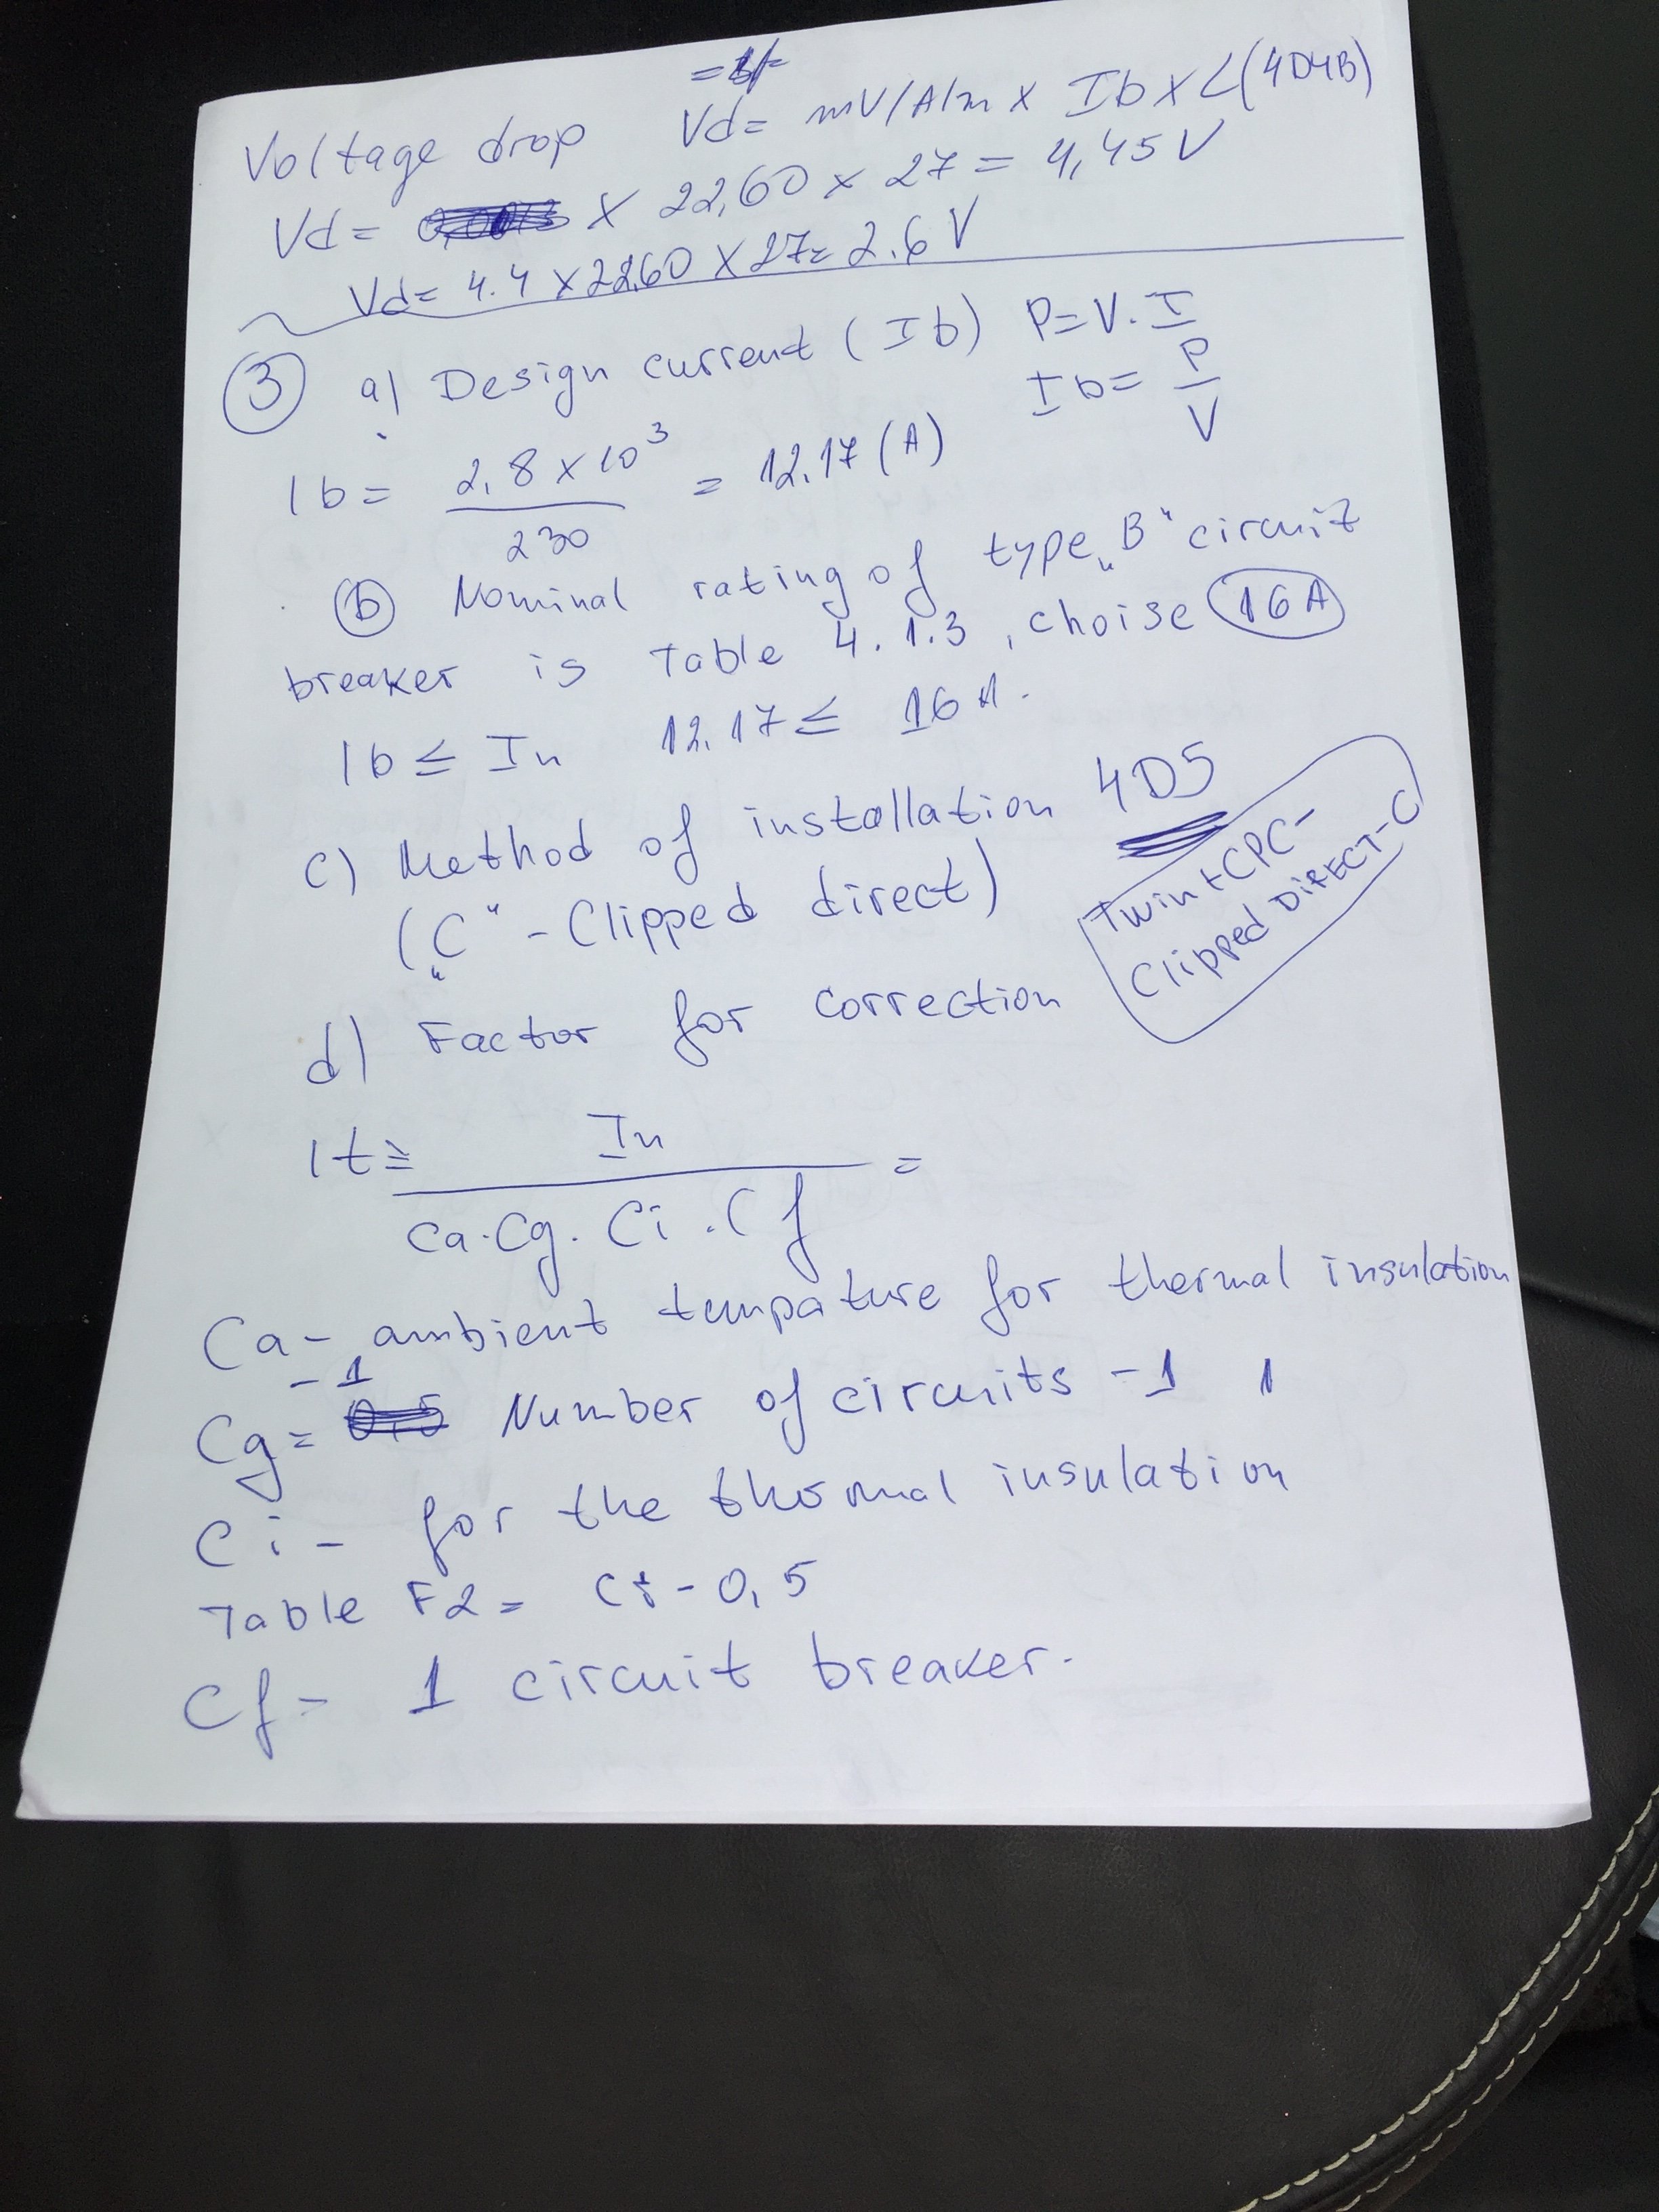 Voltage drop Vd= mV/A/m x Ib x L(4D4B)
Vd= x 22,60 x 27 = 4,45 V
Vd= 4.4 x 22,60 x 27= 2.6 V
3 a) Design current (Ib) P=V.I
Ib= P/V
Ib= 2,8 x 10³ / 230 = 12.17 (A)
b Nominal rating of type „B“ circuit
breaker is Table 4.1.3, choise 16A
Ib ≤ In 12.17 ≤ 16 A.
c) Method of installation 4D5
(„C“ - Clipped direct)
Twin+CPC-
Clipped DIRECT-C
d) Factor for correction
It ≥ In / Ca.Cg.Ci.Cf =
Ca - ambient tempature for thermal insulation
- 1
Cg= Number of circuits -1 1
Ci - for the thermal insulation
Table F2= Ci - 0,5
Cf - 1 circuit breaker.